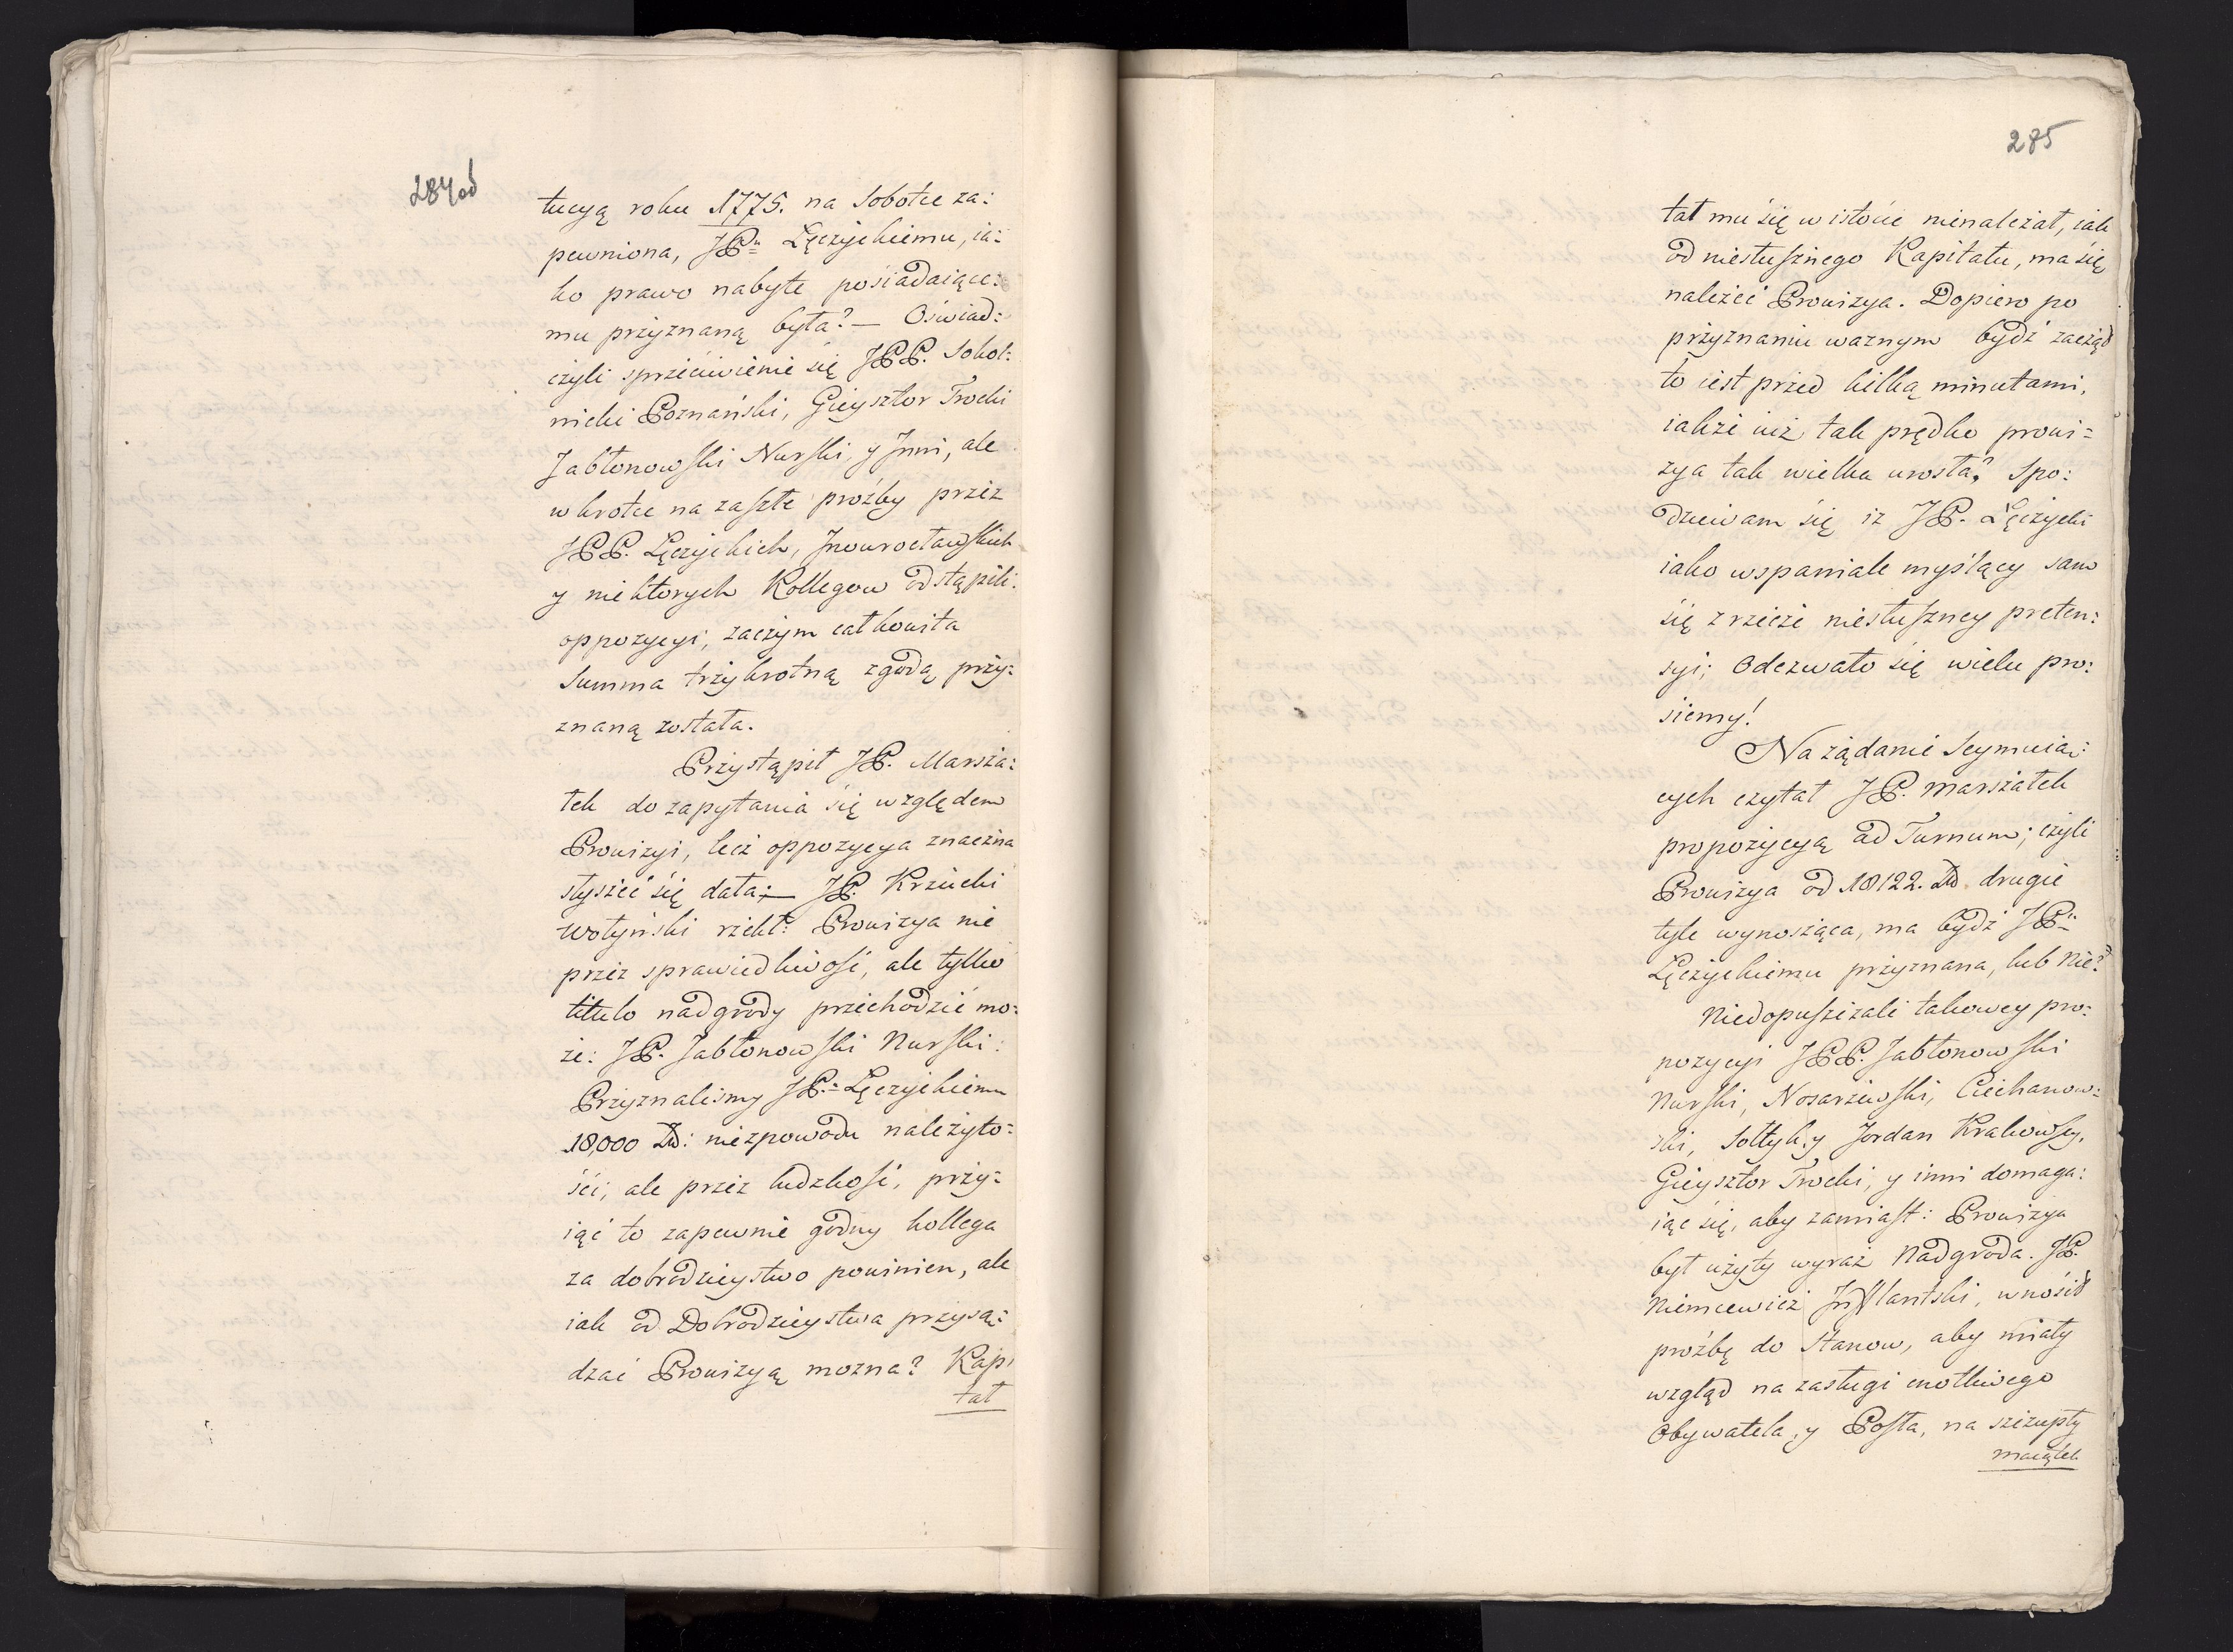 284od
tucyą roku 1775. na Sobotce za:
pewniona, JPu Łęczyckiemu, ia:
ko prawo nabyte posiadaiące:
mu przyznaną była? — Oświad:
czyli sprzeciwienie się JPP. Sokol:
nicki Poznański, Gieysztor Trocki
Jabłonowski Nurski, y Inni, ale
wkrotce na zaszłe prozby przez
JPP. Łęczyckich, Inowrocławskich
y niektorych Kollegow odstąpili
oppozycyi, zaczym całkowita
Summa trzykrotną zgodą przy:
znaną została.
Przystąpił JP. Marsza:
łek do zapytania się względem
Prowizyi, lecz oppozycya znaczna
słyszeć się dała; — JP. Krzucki
Wołyński rzekł: Prowizya nie
przez sprawiedliwość, ale tylko
titulo nadgrody przechodzić mo:
że: JP. Jabłonowski Nurski:
Przyznaliśmy JP. Łęczyckiemu
18,000 Zł: niezpowodu należyto:
ści, ale przez ludzkość, przy:
iąć to zapewnie godny kollega
za dobrodzieystwo powinien, ale
iak od Dobrodzieystwa przysą:
dzać Prowizyą można? Kapi
tał
285
tał mu się w istocie nienależał, iak
od niesłusznego Kapitału, ma się
należeć Prowizya. Dopiero po
przyznaniu ważnym bydź zaczął
to iest przed kilką minutami,
iakże iuż tak prędko prowi:
zya tak wielka urosła? Spo:
dziewam się iż JP. Łęczycki
iako wspaniale myślący sam
się zrzecze niesłuszney preten:
syi; Odezwało się wielu pro:
siemy!
Na żądanie Seymuią:
cych czytał JP. Marszałek
propozycyą ad Turnum; czyli
Prowizya od 18122. Zł. drugie
tyle wynosząca, ma bydź JPu
Łęczyckiemu przyznana, lub nie?
Niedopuszczali takowey pro:
pozycyi JPP. Jabłonowski
Nurski, Nosarzewski, Ciechanow:
ski, Sołtyk, y Jordan Krakowscy,
Gieysztor Trocki, y inni domaga:
iąc się, aby zamiast: Prowizya
był użyty wyraz Nadgroda. JP.
Niemcewicz Inflantski, wnosił
prozbę do Stanow, aby miały
wzgląd na zasługi cnotliwego
Obywatela, y Posła, na szczupły
maiątek